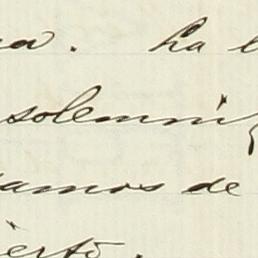 a. ha l
solemni
amos de
ierto.